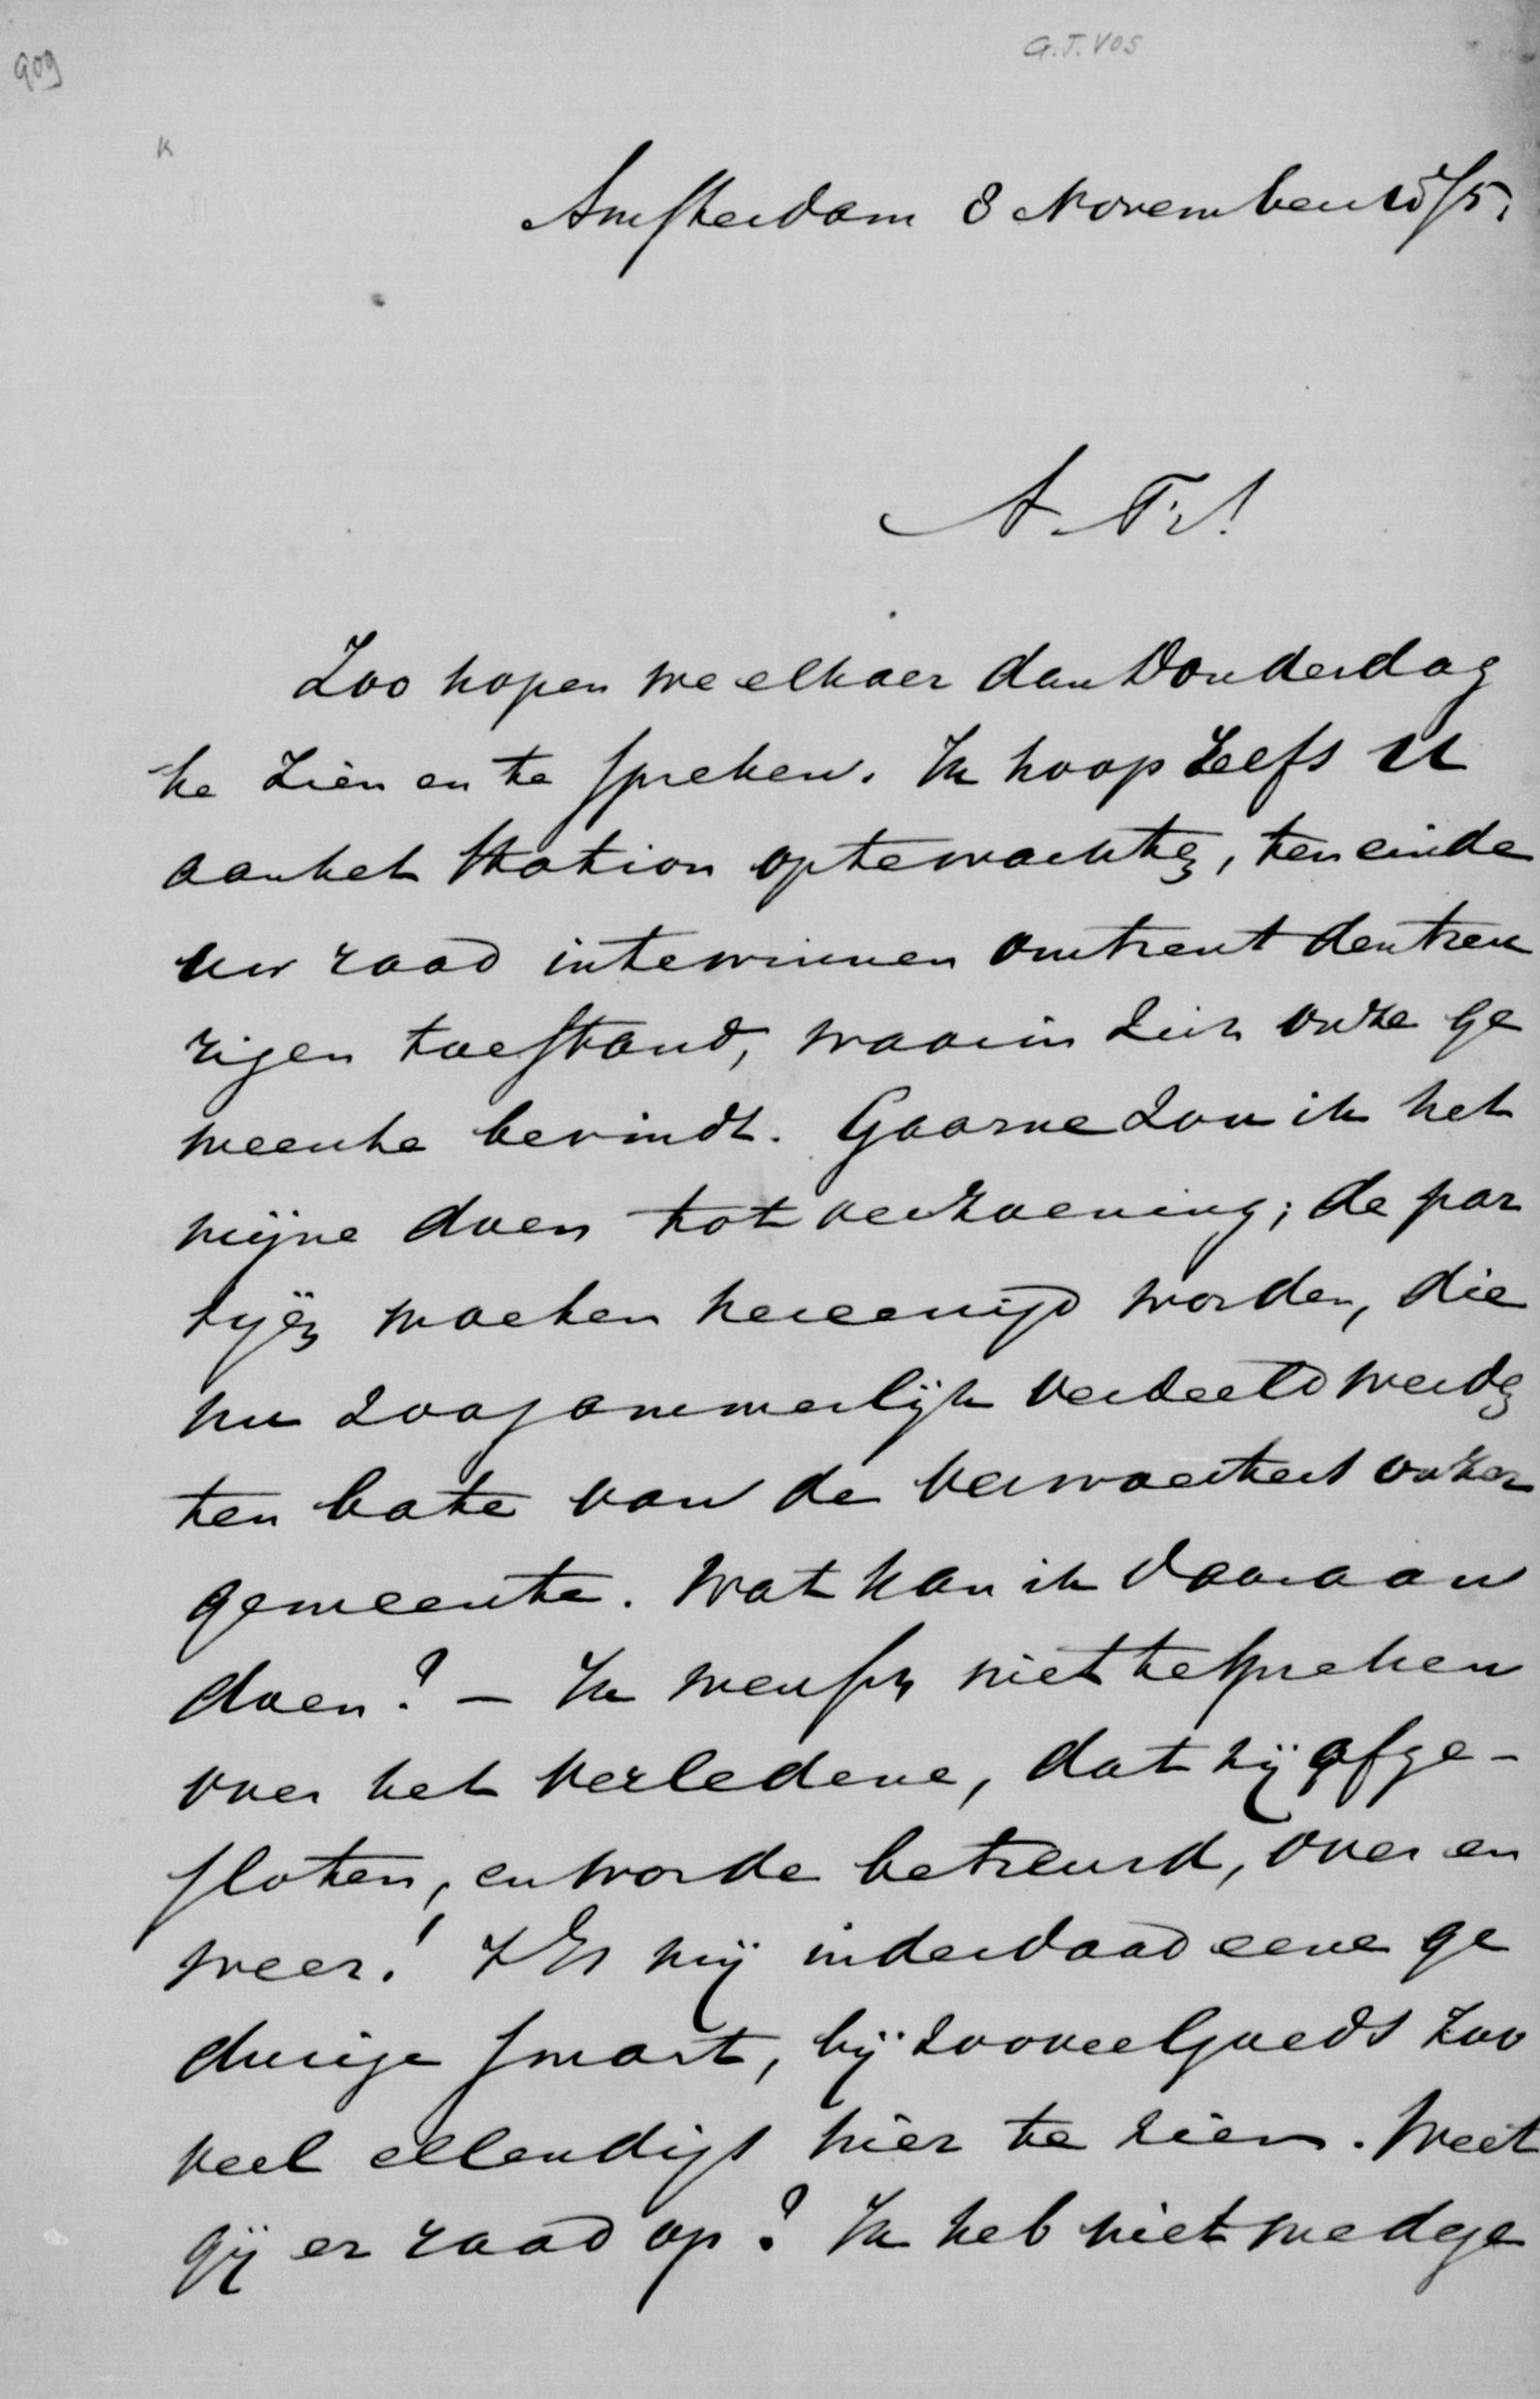 909
G.J. Vos
K
Amsterdam 8 November 1875.
A. Fr!
Zoo hopen we elkaer dan Donderdag
te zien en te spreken. Ik hoop zelfs U
aan het station optewachten, ten einde
uw raad intewinnen omtrent den treu
rigen toestand, waarin zich onze ge
meente bevindt. Gaarne zou ik het
mijne doen tot verzoening; de par
tijen moeten hereenigd worden, die
nu zoo jammerlijk verdeeld werden
ten bate van de onzer
gemeente. Wat kan ik daaraan
doen? - Ik wensch niet te spreken
over het verledene, dat zij afge-
sloten, en worde betreurd, over en
weer! 't Is mij inderdaad eene ge
durige smart, bij zooveel goeds zoo
veel ellendigs hier te zien. Weet
gij er raad op? Ik heb niet medege